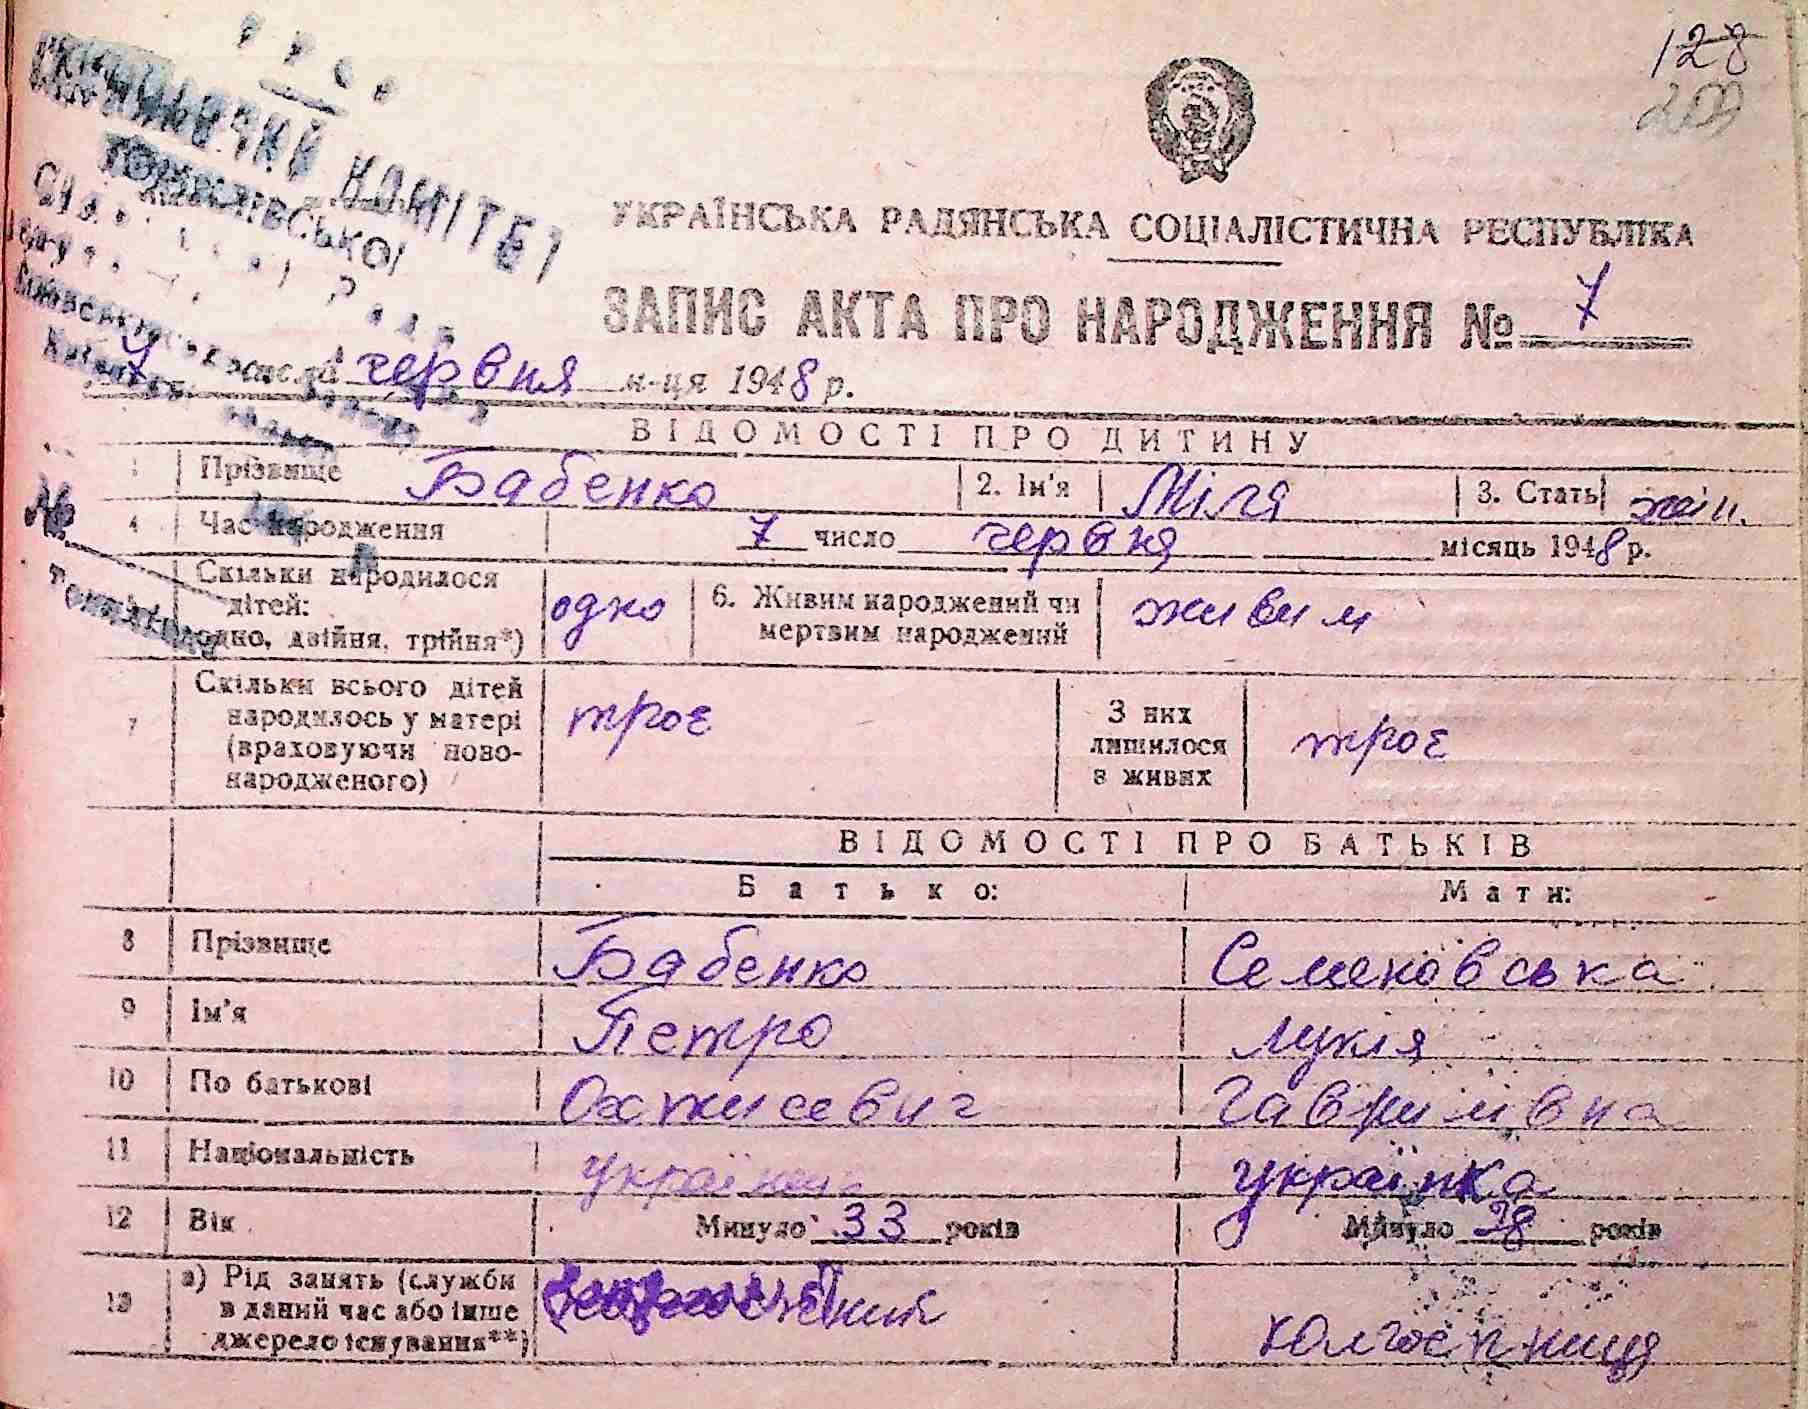 128
209
У Р С Р
ВИКОНАВЧИЙ КОМІТЕТ
УКРАЇНСЬКА РАДЯНСЬКА СОЦІАЛІСТИЧНА РЕСПУБЛІКА
ЗАПИС АКТА ПРО НАРОДЖЕННЯ № 7
7 числа червня м-ця 1948 р.
ВІДОМОСТІ ПРО ДИТИНУ
1 Прізвище Бабенко 2. Ім'я Міля 3. Стать жін.
4 Час народження 7 число червня місяць 1948 р.
Скільки народилося
дітей:
одно, двійня, трійня*) одно 6. Живим народжений чи
мертвим народжений живим
7 Скільки всього дітей
народилось у матері
(враховуючи ново-
народженого) троє З них
лишилося
в живих троє
ВІДОМОСТІ ПРО БАТЬКІВ
Батько: Мати:
8 Прізвище Бабенко Семеновська
9 Ім'я Петро Лукія
10 По батькові Гаврилівна
11 Національність українець українка
12 Вік Минуло 33 років Минуло 38 років
13 а) Рід занять (служби
в даний час або інше
джерело існування**) колгоспниця